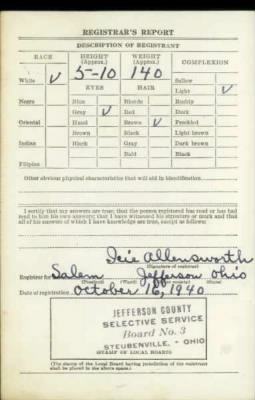 REGISTRAR'S REPORT
DESCRIPTION OF REGISTRANT
RACE HEIGHT (Approx.) WEIGHT (Approx.) COMPLEXION
White ✓ 5-10 140 Sallow
EYES HAIR Light ✓
Negro Blue Blonde Ruddy
Gray ✓ Red Dark
Oriental Hazel Brown ✓ Freckled
Brown Black Light brown
Indian Black Gray Dark brown
Bald Black
Filipino
Other obvious physical characteristics that will aid in identification
I certify that my answers are true; that the person registered has read or has had
read to him his own answers; that I have witnessed his signature or mark and that
all of his answers of which I have knowledge are true, except as follows:
Allensworth
(Signature of registrar)
Registrar for Salem Jefferson Ohio
(Precinct) (Ward) (State)
Date of registration October 16, 1940
JEFFERSON COUNTY
SELECTIVE SERVICE
Board No. 3
STEUBENVILLE, - OHIO
(STAMP OF LOCAL BOARD)
(The stamp of the Local Board having jurisdiction of the registrant
shall be placed in the above space.)